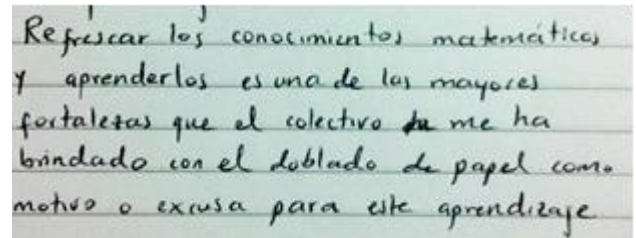 Refrescar los conocimientos matemáticos
y aprenderlos es una de las mayores
fortalezas que el colectivo me ha
brindado con el doblado de papel como
motivo o excusa para este aprendizaje